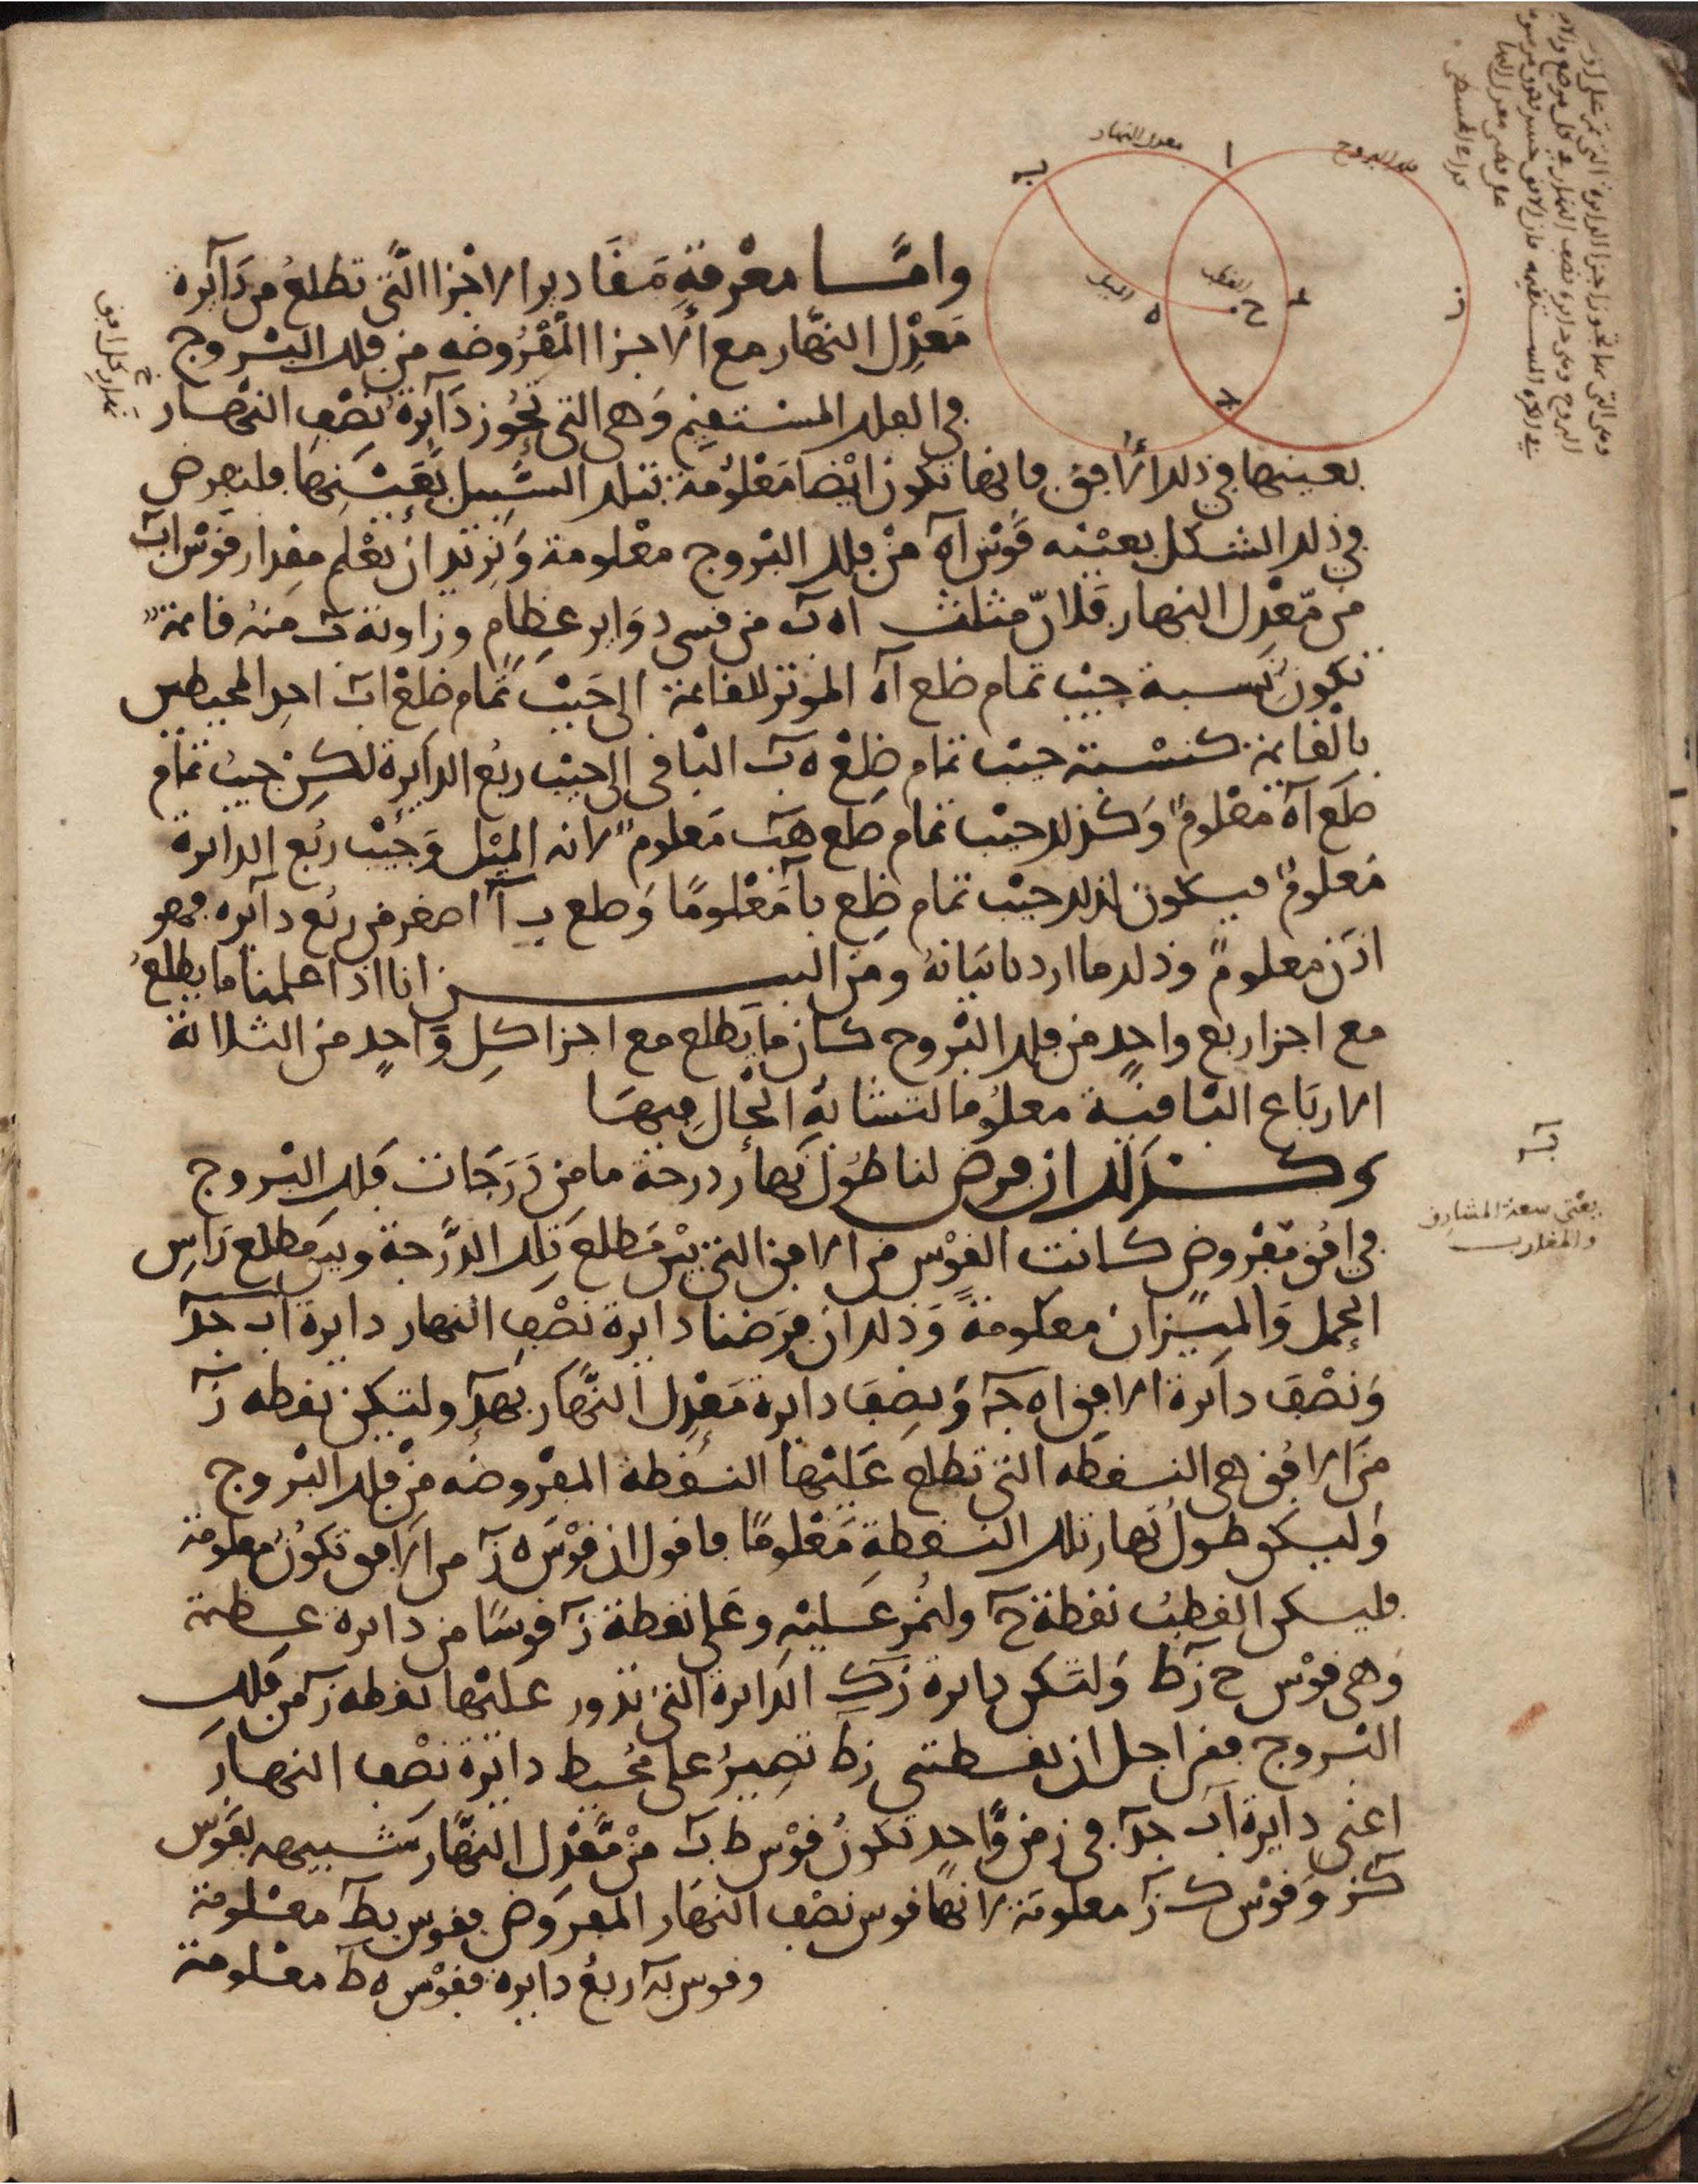 معدل النهار
فلك البروج
الميل
القطب
وامّا معْرفةِ مَقَادير الاجْزا الّتي تطلعُ من دَآئرة
مَعْدِل النهّار مع الاجزا المفْرُوضه من فلك البُروج
في الفلك المستقيم وَهي التي تجُوز دَآئرةُ نصْفِ النهار
بعينها في ذلك الافق فانها تكون ايْضا مَعْلُومة بتلك السّبيل بعَيْنها فلنفرض
في ذلك الشكل بعيْنه قَوْس اه منْ فلك البُروج معْلومة وَنريد ان نعْلم مقدار قوْس اب
من مّعْدل النهار فَلانّ مثلث اه ب من قسي دوَاير عِظامٍ وزاوية ب منهُ قائمة
تكون نسبة جيْب تمام ضلع اه الموتر للقائمة الى جَيْب تمام ضلعْ اب احد المحيطين
بالقائمة كنسْبة جيْب تمام ضِلعْ ه ب البَاقي الى جيْب ربُع الدايرة لكِنْ جيبُ تمام
ضلَع اه معْلومٌ وَكذلك جيْب تمام ضلع هب مَعلوم لانه الميْل وَجيْب ربُع الدايرة
مَعلومٌ فيكون لذلك جيْب تمام ضِلع با مَعْلومًا وَضلع ب ا اصغر من ربُع دآئره فهو
اذَن معلومٌ وذلك ما اردنا بيَانهُ ومن البين انا اذا علمنا ما يطلعُ
مع اجزا ربع واحدٍ من فلك البُروج كان ما يَطلع مع اجزا كلِ وَاحدٍ من الثلاثة
الارباع البَاقية معلوُما لتشابُهِ الحْالِ فيهَا
وكذلك ان فرض لنا طوُل نهار درجة ما من دَرَجَات فَلك البُروج
في افُق مّفْروض كانت القوْس من الافق التي بيْن مَطلع تِلك الدَّرجة وبين مَطلع رَاسِ
الحمل وَالميزان معلومةً وَذلك ان فرَضنا دايرة نصْفِ النهار دايرة اب جد
وَنصْف دآئرة الافق اه ج وَنصِف دايرة مَعْدِل النّهار بهد ولتكن نقطه ز
منَ الافُق هي النقطه التي تطلع عَليْها النقطة المفْروضه منْ فلك البُروج
وَليكن طول نهار تلك النقطةِ مَعْلومًا فاقول ان قوْسَ ه ز من الافق تكوُن معلومة
فليكن القطبُ نقطة ح ولنُمر عَليْه وعَلى نقطة ز قوسًا من دايرة عظيمة
وَهي قوْس ح زط وَلتَكن دايرة زك الدايرة التي تدور عليْها نقطه ز من فلك
البُروج فمن اجل ان نقطتي زط تصيرُ على مُحيط دايرة نصْف النهار
اعنى دايرة اب جد في زمن وّاحد تكونُ قوْس ط ب منْ مّعْدِل النهّار شبيهه بقوْس
كز وَقوْس ك ز معلومَة لانهّا قوس نصْف النهّار المفروض فقوس بط معْلومة
وقوس به ربعُ دايرة فقوْس ه ط معْلومة
يعْني سعة المشارق
والمغارب